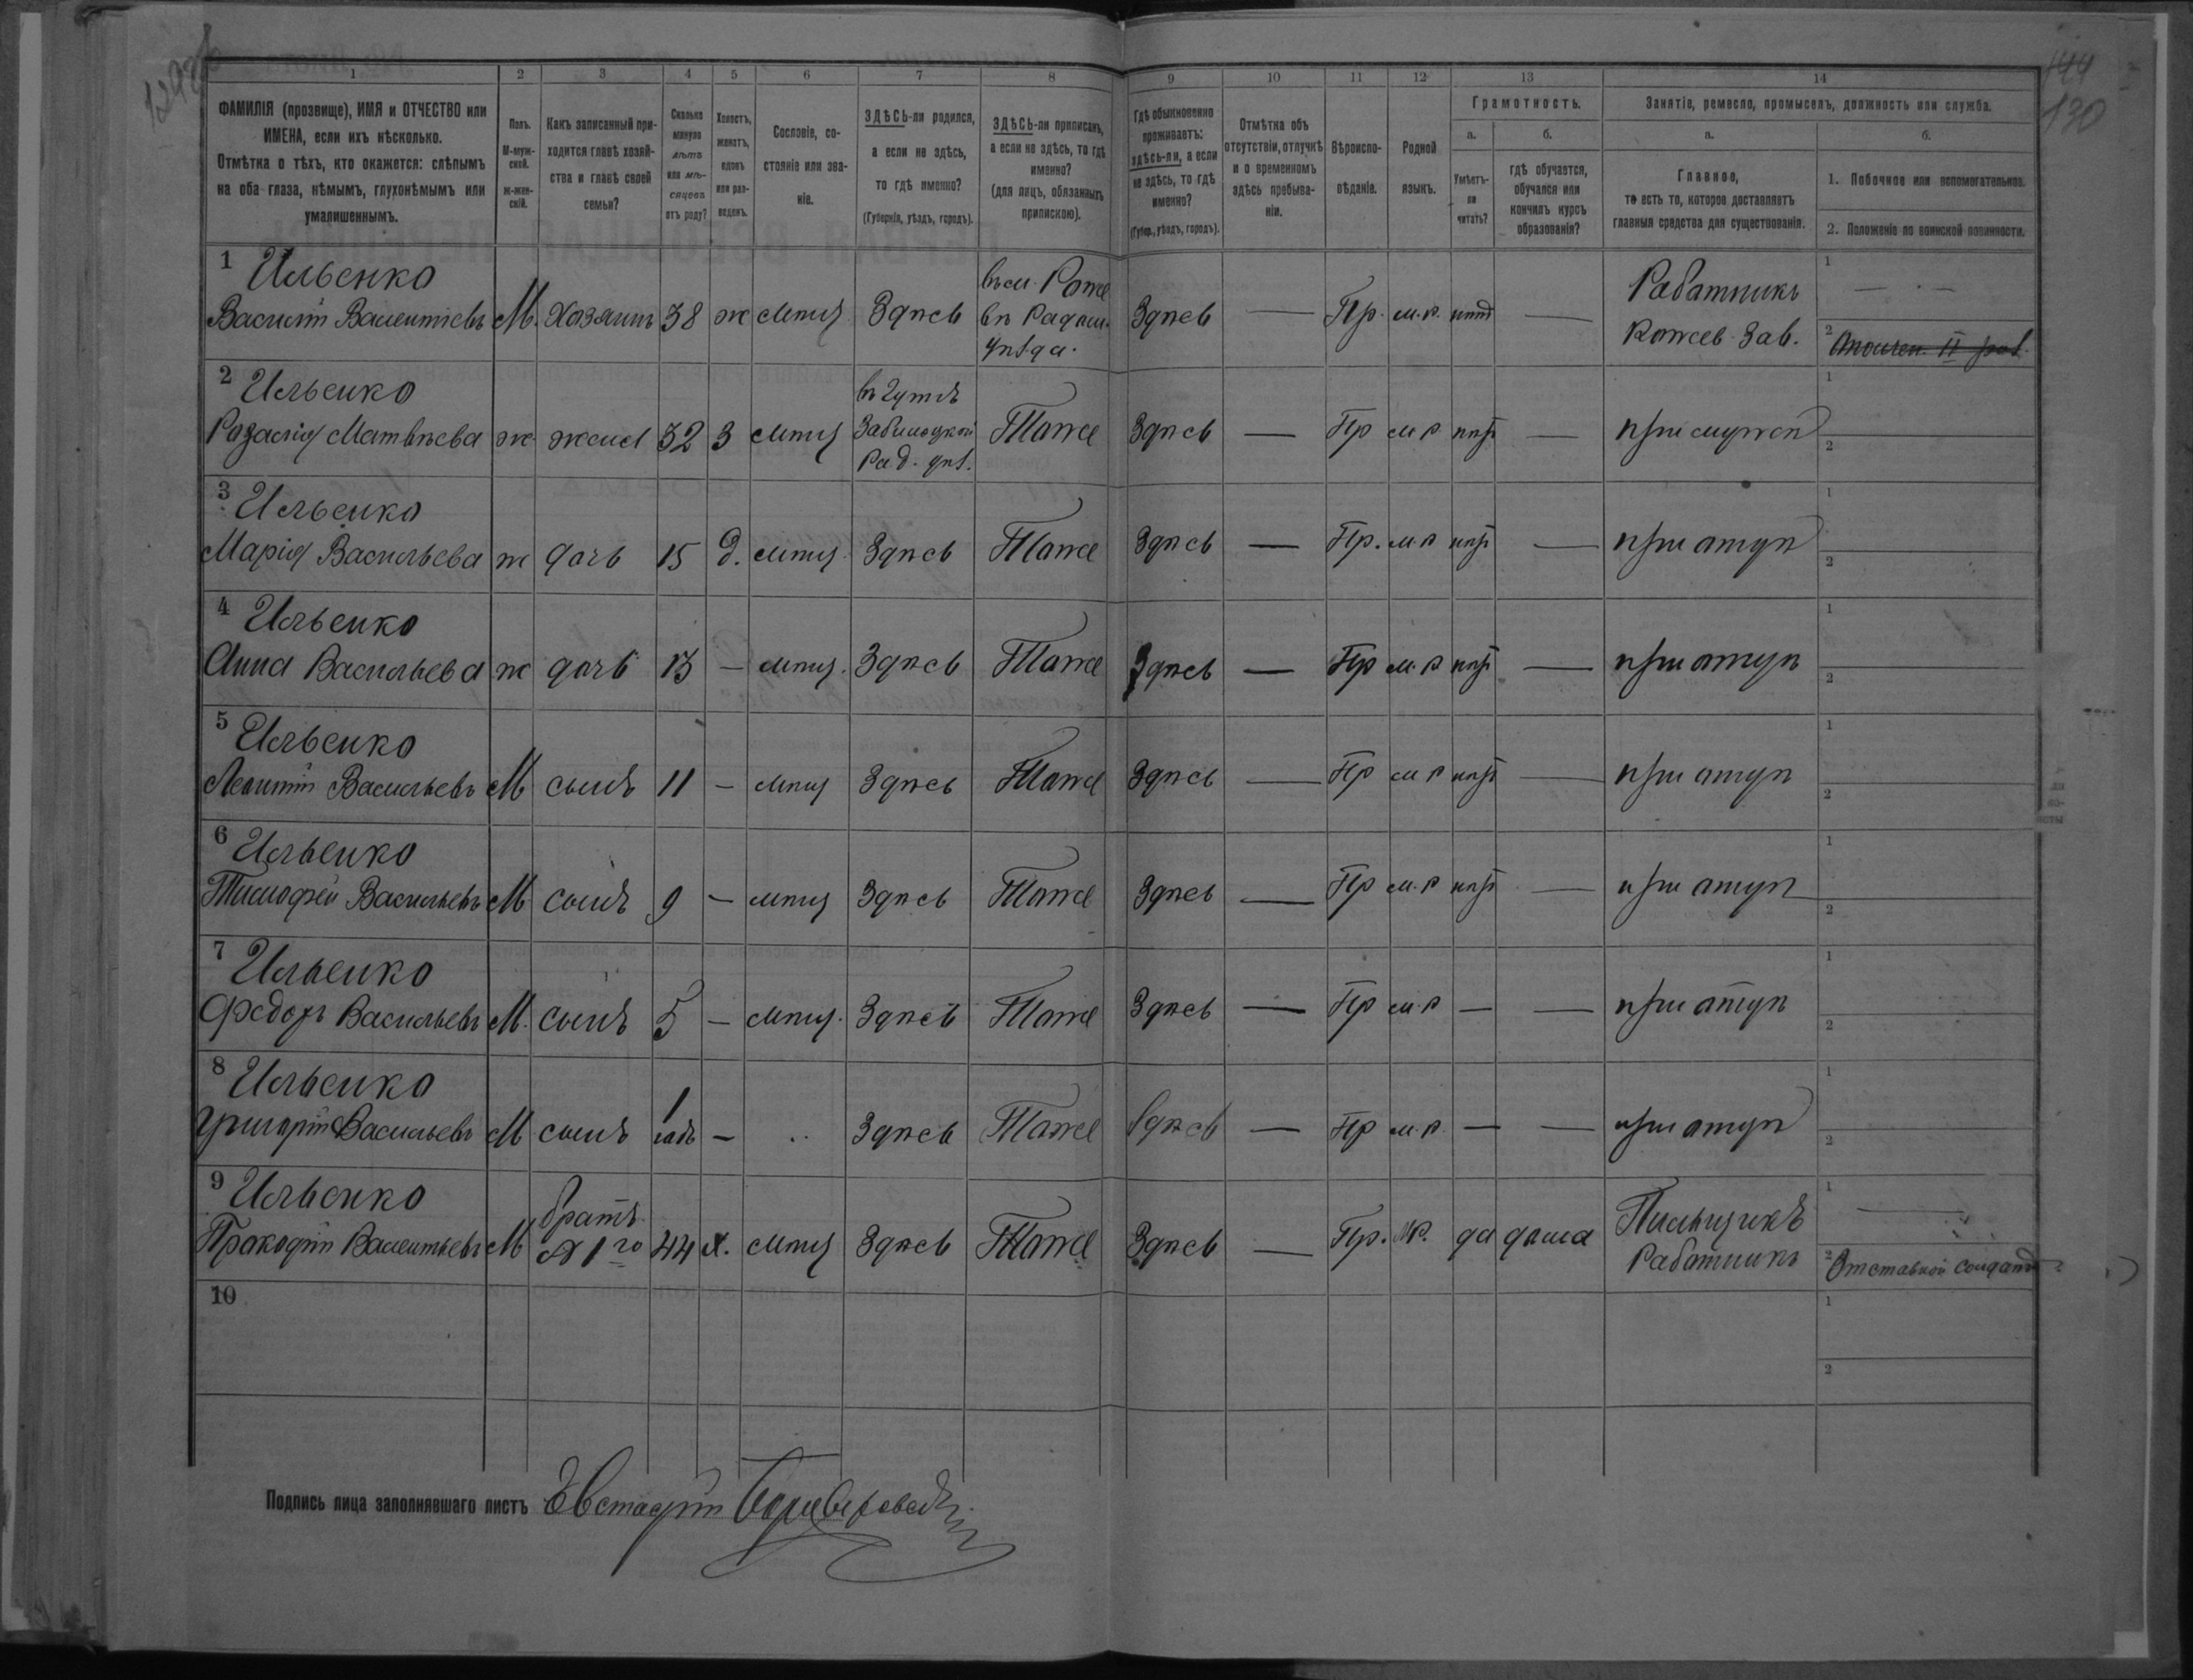 144
130
1 2 3 4 5 6 7 8 9 10 11 12 13 14
ФАМИЛІЯ (прозвище), ИМЯ и ОТЧЕСТВО или
ИМЕНА, если ихъ нѣсколько.
Отмѣтка о тѣхъ, кто окажется: слѣпымъ
на оба глаза, нѣмымъ, глухонѣмымъ или
умалишеннымъ.
Полъ.
М-муж-
ской.
ж-жен-
скій.
Какъ записанный при-
ходится главѣ хозяй-
ства и главѣ своей
семьи?
Сколько
минуло
лѣтъ
или мѣ-
сяцевъ
отъ роду?
Холостъ,
женатъ,
вдовъ
или раз-
веденъ.
Сословіе, со-
стояніе или зва-
ніе.
ЗДѢСЬ-ли родился,
а если не здѣсь,
то гдѣ именно?
(Губернія, уѣздъ, городъ).
ЗДѢСЬ-ли приписанъ,
а если не здѣсь, то гдѣ
именно?
(для лицъ, обязанныхъ
припискою).
Гдѣ обыкновенно
проживаетъ:
здѣсь-ли, а если
не здѣсь, то гдѣ
именно?
(Губер., уѣздъ, городъ).
Отмѣтка объ
отсутствіи, отлучкѣ
и о временномъ
здѣсь пребыва-
ніи.
Вѣроиспо-
вѣданіе.
Родной
языкъ.
Грамотность.
а.
Умѣетъ-
ли
читать?
б.
гдѣ обучается,
обучался или
кончилъ курсъ
образованія?
Занятіе, ремесло, промыселъ, должность или служба.
а.
Главное,
то есть то, которое доставляетъ
главныя средства для существованія.
б.
1. Побочное или вспомогательное.
2. Положеніе по воинской повинности.
1 Ильенко
Василій Валентіевъ М. хозяинъ 38 ж мпщ Здпсь
въ Радом.
упзда.
Здпсь — Пр. м.р. —
Работникъ
Кожев. Зав.
2 Ильенко
Розалія Матвпева ж жена 32 З мпщ
Рад. упз.
Тоже Здпсь — Пр м р —
3 Ильенко
Марія Васильева ж дочь 15 д. мпщ. Здпсь Тоже Здпсь — Пр. м.р — при отцп
4 Ильенко
Анна Васильева ж дочь 13 — мпщ. Здпсь Тоже Здпсь — Пр м.р — при отцп
5 Ильенко
Леонтій Васильевъ М сынъ 11 — мпщ Здпсь Тоже Здпсь — Пр м р — при отцп
6 Ильенко
Тимофей Васильевъ М сынъ 9 — мпщ Здпсь Тоже Здпсь — Пр м.р — при отцп
7 Ильенко
Федоръ Васильевъ М. сынъ 5 — мпщ. Здпсь Тоже Здпсь — Пр м.р — — при отцп
8 Ильенко
Григорій Васильевъ М сынъ 1 годъ — .. Здпсь Тоже Здпсь — Пр м.р — — при отцп
9 Ильенко
Прокофій Валентьевъ М братъ
№ 1го 44 х. мпщ Здпсь Тоже Здпсь — Пр. МР. да дома
Пильщикъ
Работникъ
2 Отставной солдатъ
10
Подпись лица заполнявшаго листъ Евстафій